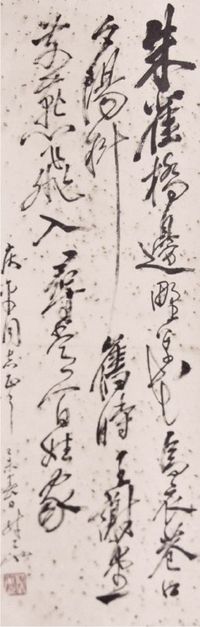 朱雀橋邊野草花烏衣巷口
夕陽斜舊時王謝堂
前燕飛入尋常百姓家
庆来同志正之